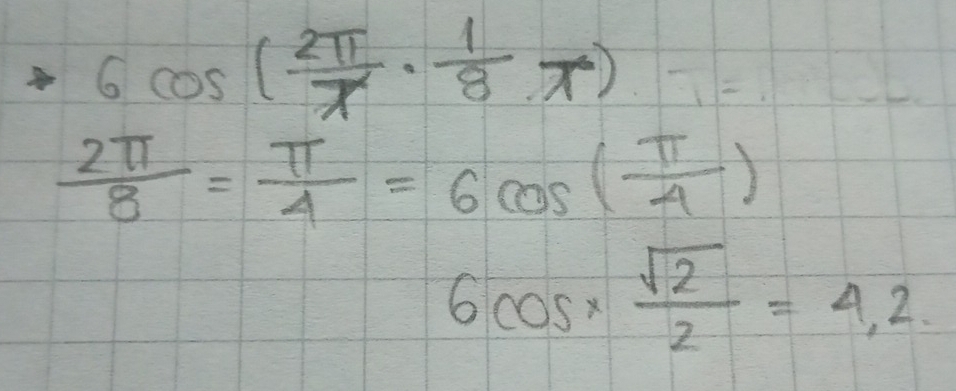 * 6 cos (2π/T · 1/8 T)
2π/8 = π/4 = 6 cos (π/4)
6 cos × √2/2 = 4,2.